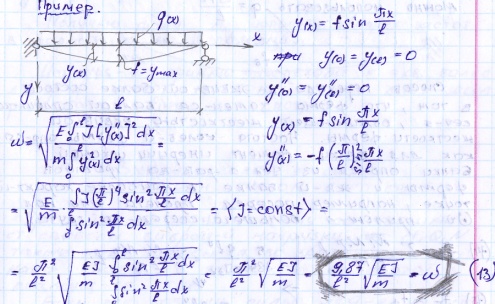 Пример.
q(x)
x
y(x)
f=y_max
y
l
y(x) = f sin πx/l
при y(0) = y(l) = 0
y''(0) = y''(l) = 0
y(x) = f sin πx/l
y''(x) = -f (π/l)² sin πx/l
ω = √(E∫₀ˡ J[y''(x)]² dx / m∫₀ˡ y²(x) dx) =
= √(E/m · ∫J(π/l)⁴ sin² πx/l dx / ∫ sin² πx/l dx) = ⟨J = const⟩ =
= π²/l² √(EJ/m · ∫₀ˡ sin² πx/l dx / ∫ sin² πx/l dx) = π²/l² √(EJ/m) = 9,87/l² √(EJ/m) = ω (13)